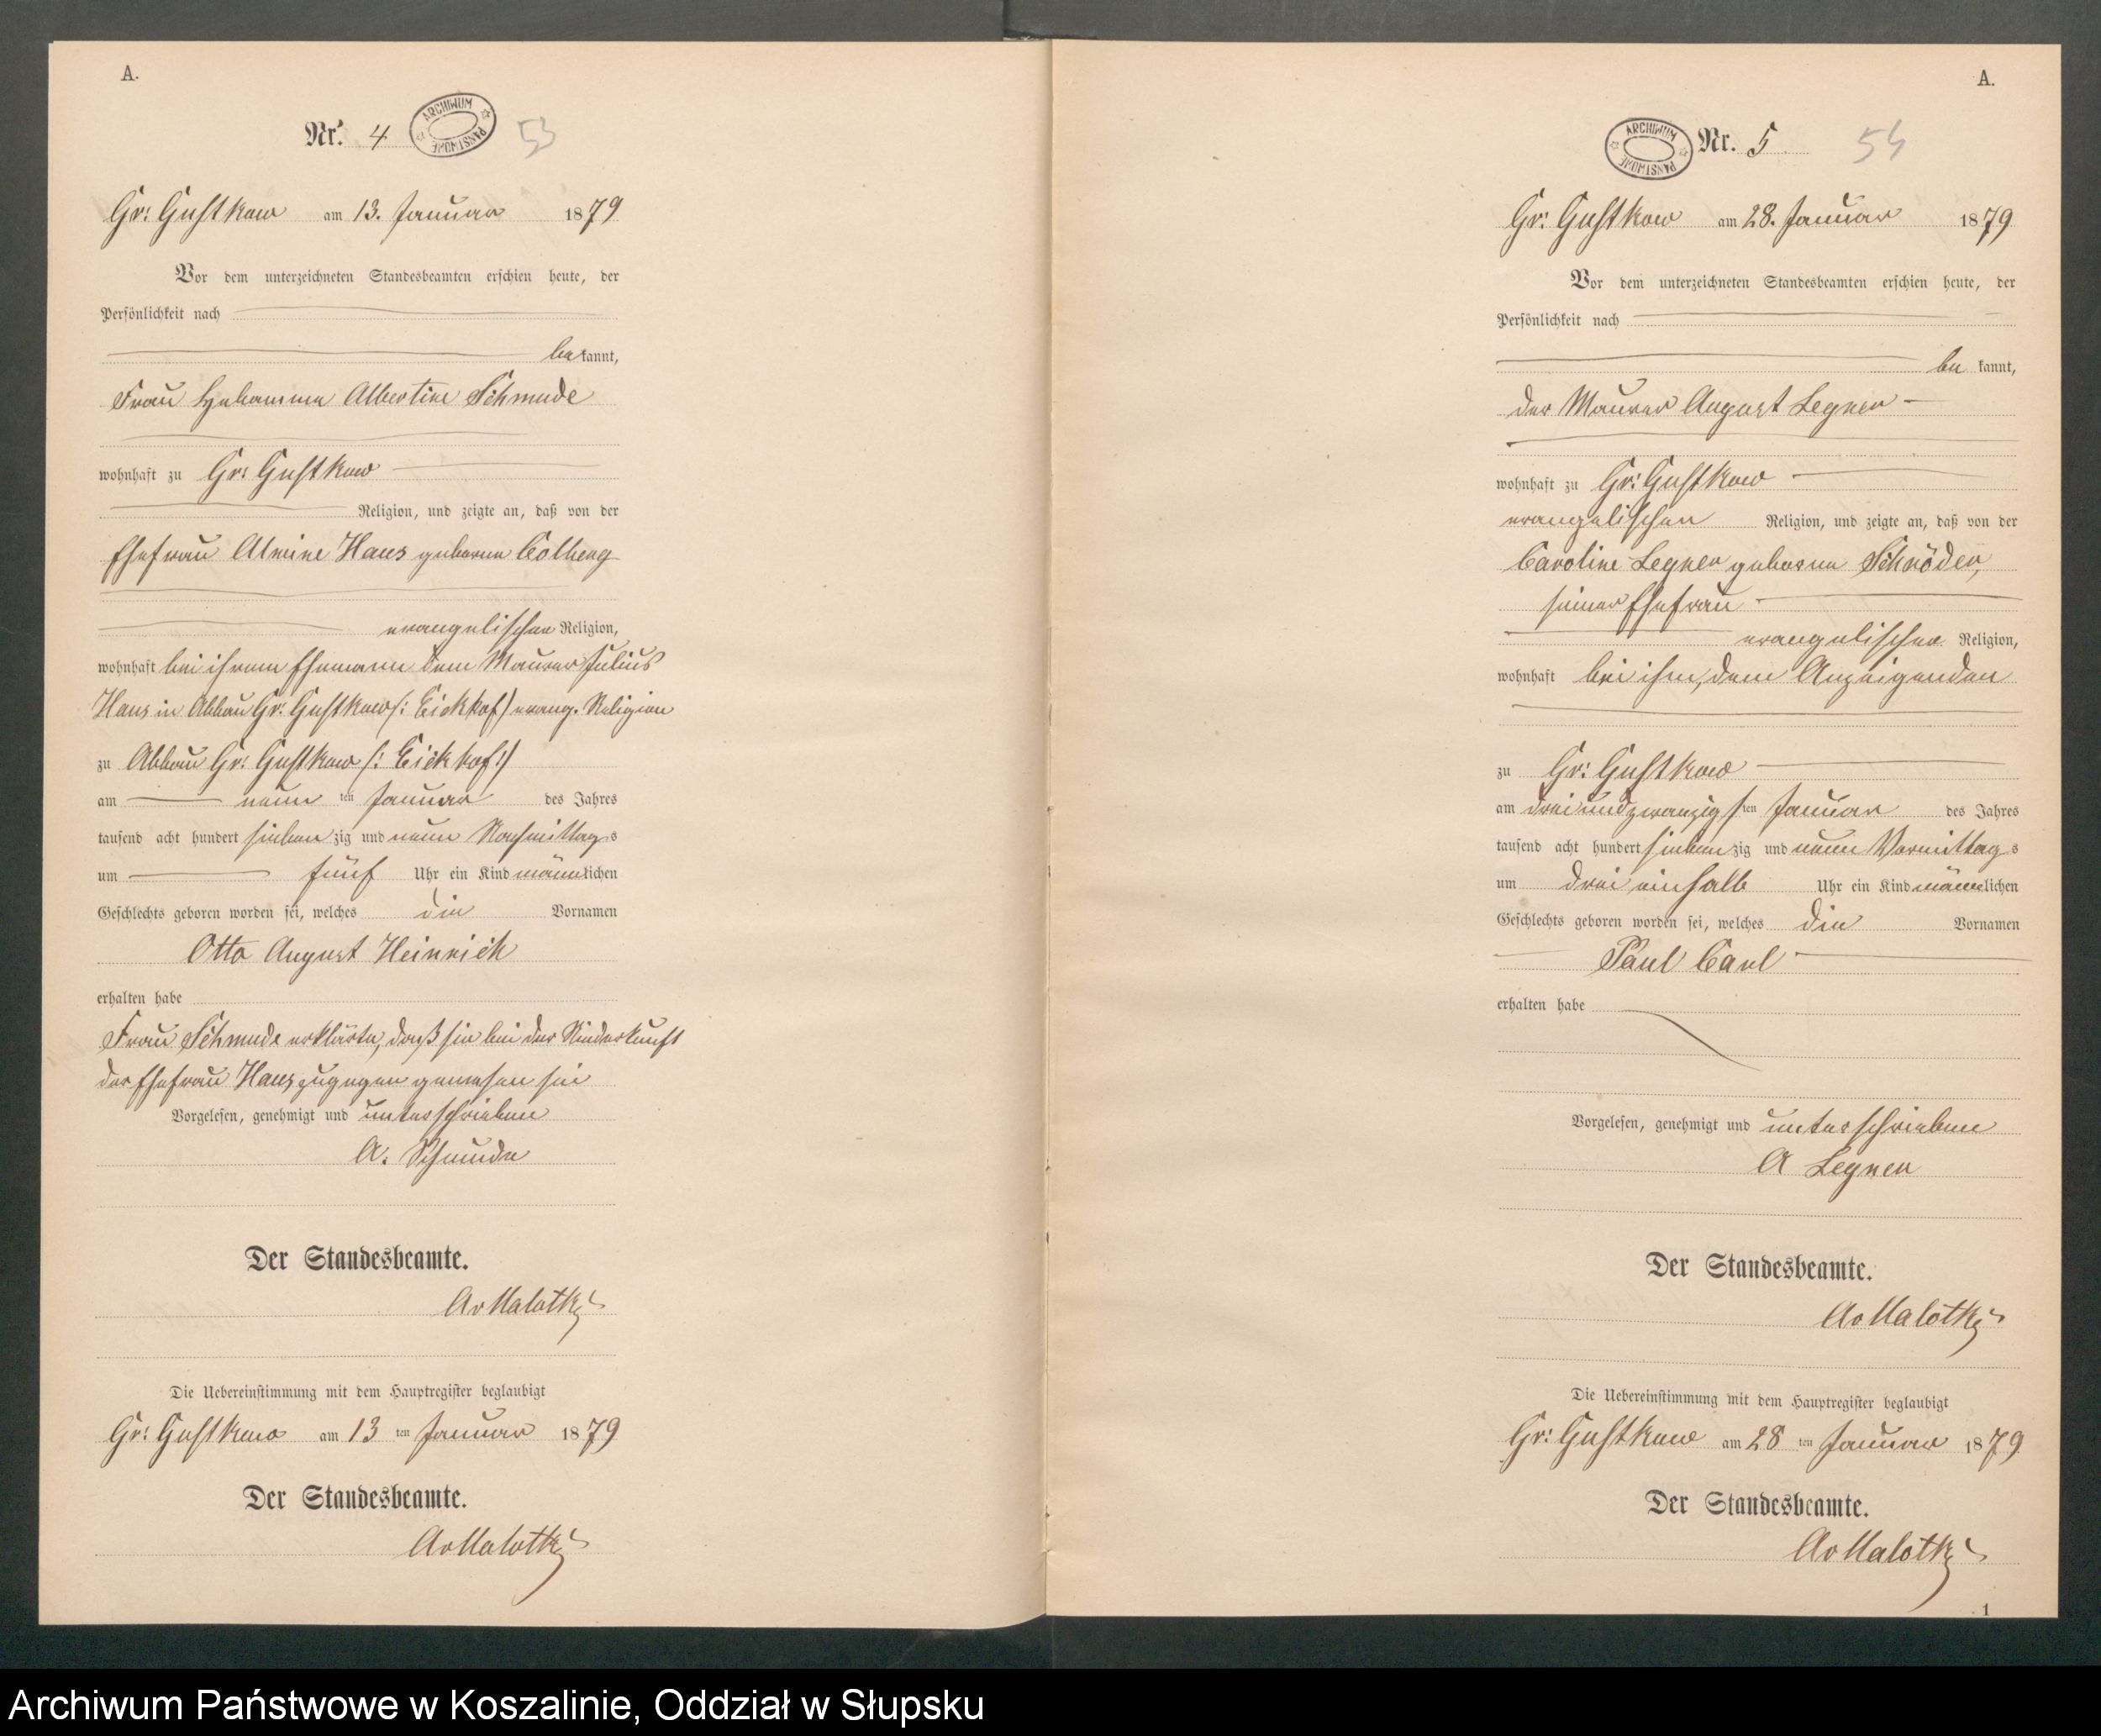 A.
Nr. 4
ARCHIWUM PAŃSTWOWE
53
Gr: Gustkow am 13. Januar 1879
Vor dem unterzeichneten Standesbeamten erschien heute, der
Persönlichkeit nach
bekannt,
Frau Hebamme Albertine Schmude
wohnhaft zu Gr: Gustkow
Religion, und zeigte an, daß von der
Ehefrau Alwine Haus geborne Colberg
evangelischer Religion,
wohnhaft bei ihrem Ehemann dem Maurer Julius
Haus in Abbau Gr: Gustkow (: Eickhof) evang. Religion
zu Abbau Gr: Gustkow (: Eickhof:)
am neun ten Januar des Jahres
tausend acht hundert siebenzig und neun Nachmittags
um fünf Uhr ein Kind männlichen
Geschlechts geboren worden sei, welches die Vornamen
Otto August Heinrich
erhalten habe
Frau Schmude erklärte, daß sie bei der Niederkunft
der Ehefrau Haus zugegen gewesen sei
Vorgelesen, genehmigt und unterschrieben
A. Schmude
Der Standesbeamte.
AvMalotky
Die Uebereinstimmung mit dem Hauptregister beglaubigt
Gr: Gustkow am 13 ten Januar 1879
Der Standesbeamte.
AvMalotky
A.
ARCHIWUM PAŃSTWOWE
Nr. 5
54
Gr: Gustkow am 28. Januar 1879
Vor dem unterzeichneten Standesbeamten erschien heute, der
Persönlichkeit nach
be kannt,
der Maurer August Legner
wohnhaft zu Gr: Gustkow
evangelischen Religion, und zeigte an, daß von der
Caroline Legner geborne Schröder,
seiner Ehefrau
evangelischer Religion,
wohnhaft bei ihm, dem Anzeigenden
zu Gr: Gustkow
am dreiundzwanzigsten Januar des Jahres
tausend acht hundert siebenzig und neun Vormittags
um drei einhalb Uhr ein Kind männlichen
Geschlechts geboren worden sei, welches die Vornamen
Paul Carl
erhalten habe
Vorgelesen, genehmigt und unterschrieben
A Legner
Der Standesbeamte.
AvMalotky
Die Uebereinstimmung mit dem Hauptregister beglaubigt
Gr: Gustkow am 28 ten Januar 1879
Der Standesbeamte.
AvMalotky
1
Archiwum Państwowe w Koszalinie, Oddział w Słupsku